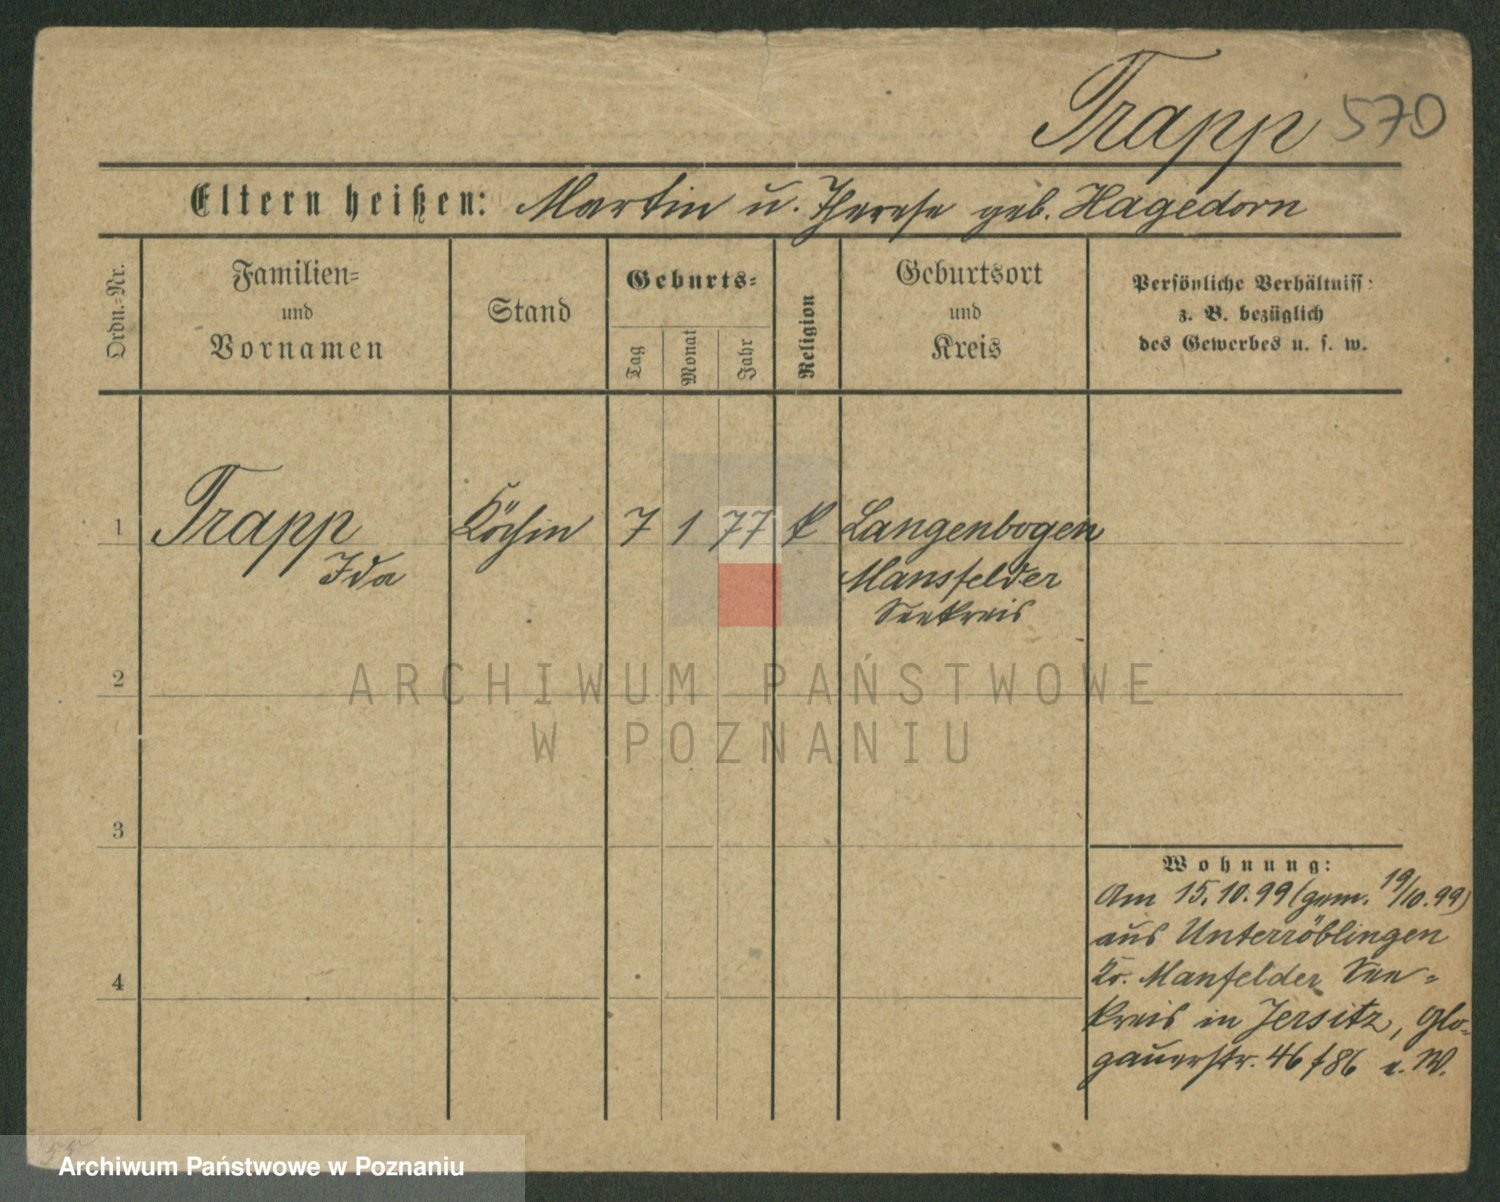 Trapp 570
Eltern heißen: Martin u. Therese geb. Hagedorn
Ordn.-Nr.
Familien-
und
Vornamen
Stand
Geburts-
Tag
Monat
Jahr
Religion
Geburtsort
und
Kreis
Persönliche Verhältniss
z. B. bezüglich
des Gewerbes u. s. w.
1 Trapp Köchin 7 1 77 k Langenbogen
Ida Mansfelder
Seekreis
2
ARCHIWUM PAŃSTWOWE
W POZNANIU
3
Wohnung:
Am 15.10.99 (gem. 19/10.99)
aus Unterröblingen
Kr. Manfelder See-
kreis in Jersitz, Glo-
gauerstr. 46/86 e. W.
4
Archiwum Państwowe w Poznaniu